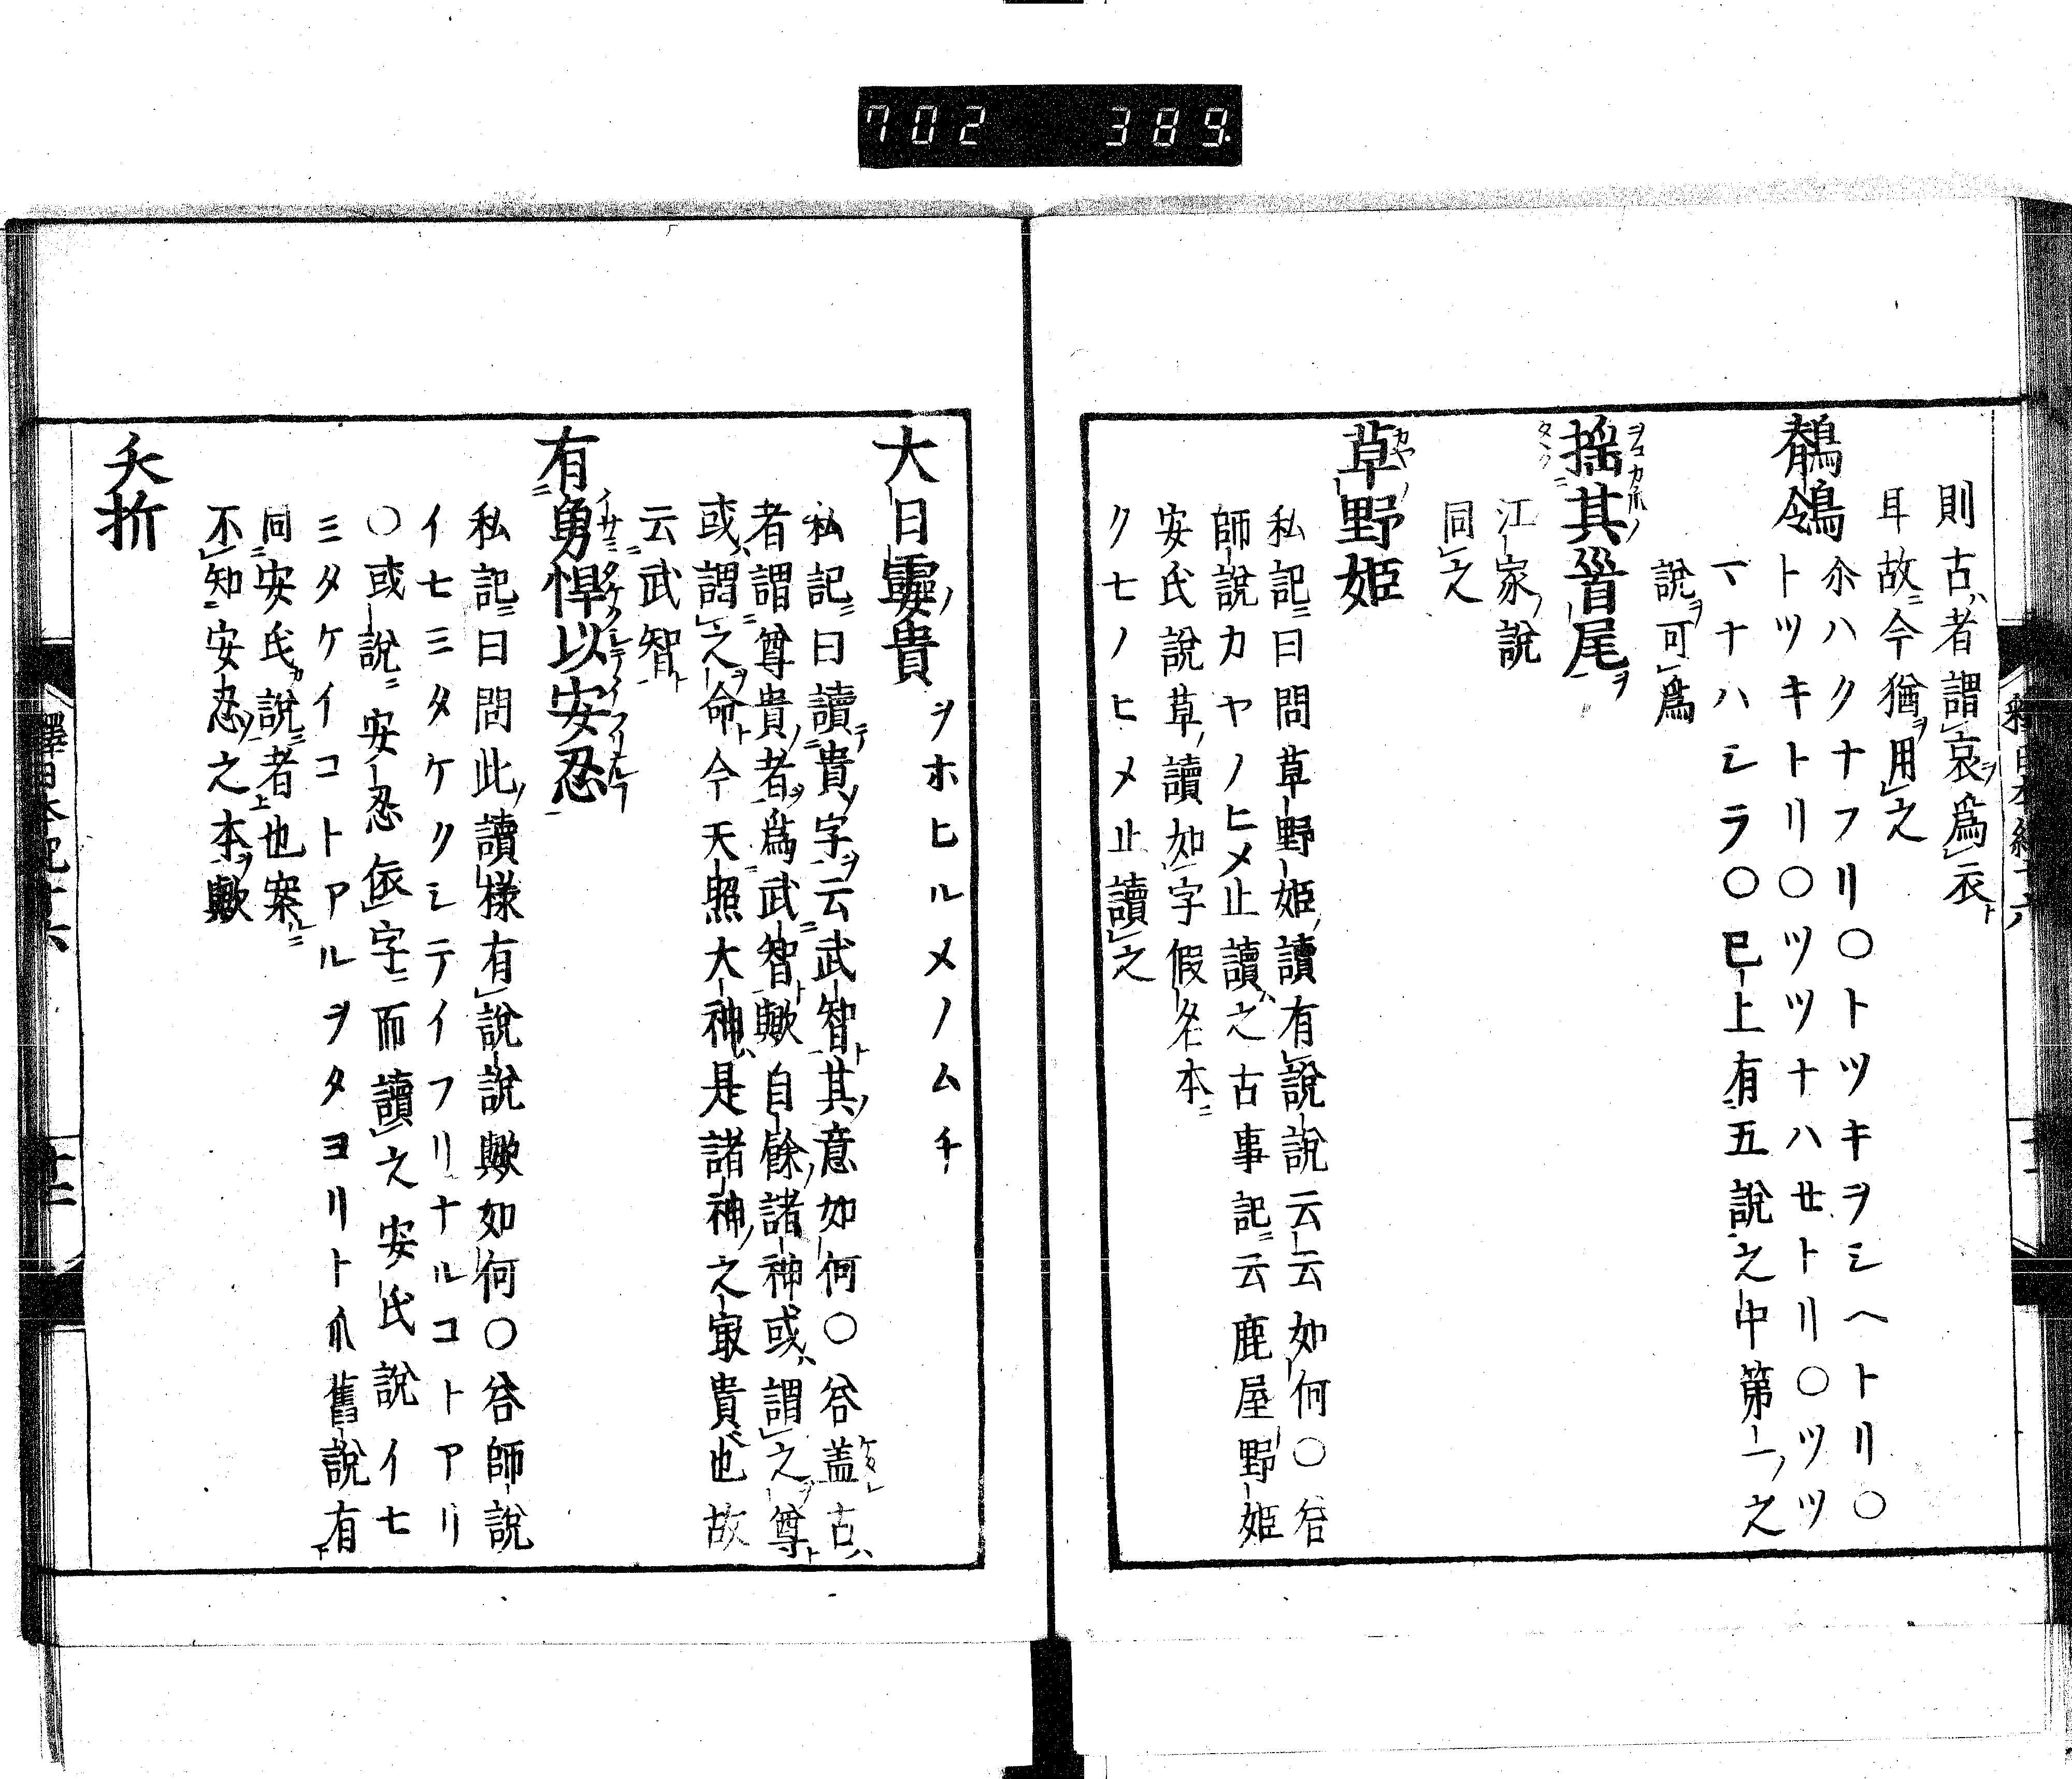 702 389
則古者謂哀爲衣
耳故今猶用之
鶺鴒 尒ハクナフリ〇トツキヲシヘトリ〇
トツキトリ〇ツツナハセトリ〇ツツ
マナハシラ〇巳上有五說之中第一之
說可爲
搖其首尾
江家說
同之
草野姫
私記曰問草野姫讀有說說云云如何〇答
師說カヤノヒメ止讀之古事記云鹿屋野姫
安氏說草讀如字假名本
クセノヒメ止讀之
大日孁貴 ヲホヒルメノムチ
私記曰讀貴字云武智其意如何〇答盖古
者謂尊貴者爲武智歟自餘諸神或謂之尊
或謂之命今天照大神是諸神之㝡貴也故
云武智
有勇悍以安忍
私記曰問此讀樣有說說歟如何〇答師說
イセミタケクシテイフリナルコトアリ
〇或說安忍依字而讀之安氏說イセ
ミタケイコトアルヲタヨリト爪舊說有
同安氏說者也案
不知安忍之本歟
夭折
釋日本紀十六
十二